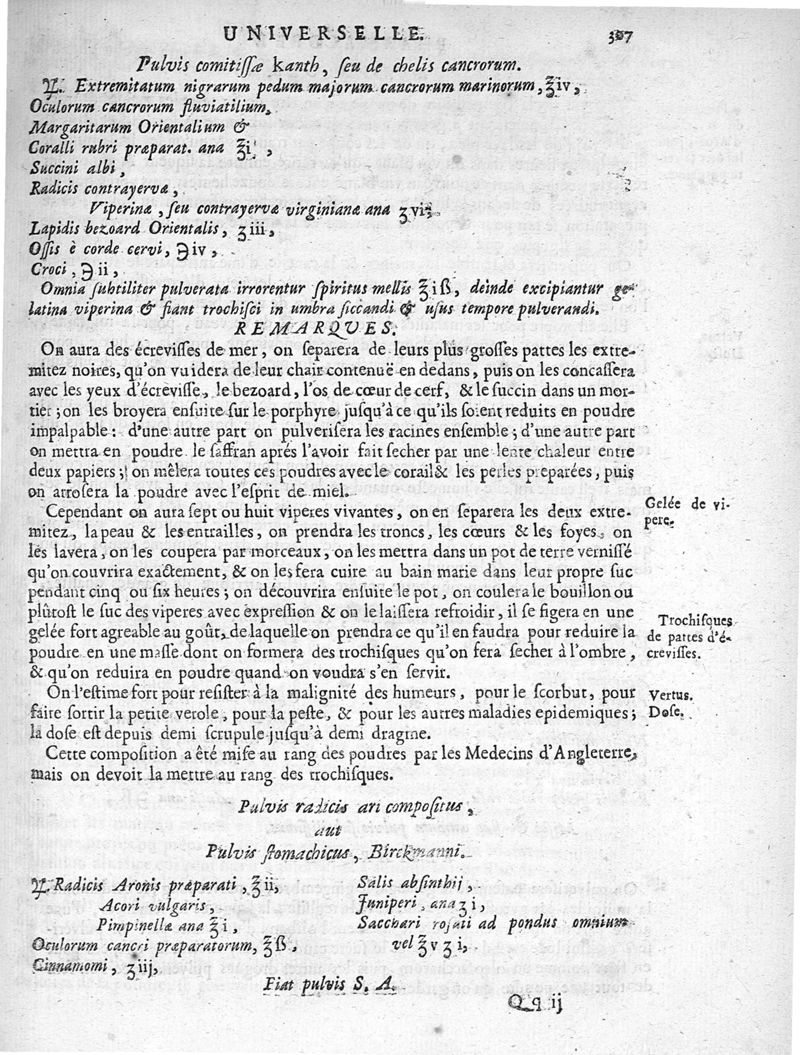 UNIVERSELLE. 307
Pulvis comitiſſæ kanth, ſeu de chelis cancrorum.
℞. Extremitatum nigrarum pedum majorum cancrorum marinorum, ℥iv,
Oculorum cancrorum fluviatilium,
Margaritarum Orientalium &
Coralli rubri præparat. ana ℥i,
Succini albi,
Radicis contrayervæ,
Viperinæ, ſeu contrayervæ virginianæ ana ʒvi,
Lapidis bezoard Orientalis, ʒiii,
Oſſis è corde cervi, ℈iv,
Croci, ℈ii,
Omnia ſubtiliter pulverata irrorentur ſpiritus mellis ℥iß, deinde excipiantur ge-
latina viperina & fiant trochiſci in umbra ſiccandi & uſus tempore pulverandi.
REMARQUES.
On aura des écreviſſes de mer, on ſeparera de leurs plus groſſes pattes les extre-
mitez noires, qu'on vuidera de leur chair contenuë en dedans, puis on les concaſſera
avec les yeux d'écreviſſe, le bezoard, l'os de cœur de cerf, & le ſuccin dans un mor-
tier; on les broyera enſuite ſur le porphyre juſqu'à ce qu'ils ſoient reduits en poudre
impalpable: d'une autre part on pulveriſera les racines enſemble; d'une autre part
on mettra en poudre le ſaffran aprés l'avoir fait ſecher par une lente chaleur entre
deux papiers; on mêlera toutes ces poudres avec le corail & les perles preparées, puis
on arroſera la poudre avec l'eſprit de miel.
Cependant on aura ſept ou huit viperes vivantes, on en ſeparera les deux extre-
mitez, la peau & les entrailles, on prendra les troncs, les cœurs & les foyes, on
les lavera, on les coupera par morceaux, on les mettra dans un pot de terre verniſſé
qu'on couvrira exactement, & on les fera cuire au bain marie dans leur propre ſuc
pendant cinq ou ſix heures; on découvrira enſuite le pot, on coulera le bouillon ou
plûtoſt le ſuc des viperes avec expreſſion & on le laiſſera refroidir, il ſe figera en une
gelée fort agreable au goût, de laquelle on prendra ce qu'il en faudra pour reduire la
poudre en une maſſe dont on formera des trochiſques qu'on fera ſecher à l'ombre,
& qu'on reduira en poudre quand on voudra s'en ſervir.
On l'eſtime fort pour reſiſter à la malignité des humeurs, pour le ſcorbut, pour
faire ſortir la petite verole, pour la peſte, & pour les autres maladies epidemiques;
la doſe eſt depuis demi ſcrupule juſqu'à demi dragme.
Cette compoſition a été miſe au rang des poudres par les Medecins d'Angleterre,
mais on devoit la mettre au rang des trochiſques.
Gelée de vi-
pere.
Trochiſques
de pattes d'é-
creviſſes.
Vertus.
Doſe.
Pulvis radicis ari compoſitus,
aut
Pulvis ſtomachicus, Birckmanni.
℞. Radicis Aronis præparati, ℥ii,
Acori vulgaris,
Pimpinellæ ana ℥i,
Oculorum cancri præparatorum, ℥ß,
Cinnamomi, ʒiij,
Salis abſinthij,
Juniperi, ana ʒi,
Sacchari roſati ad pondus omnium
vel ℥v ʒi,
Fiat pulvis S. A.
Qq ij